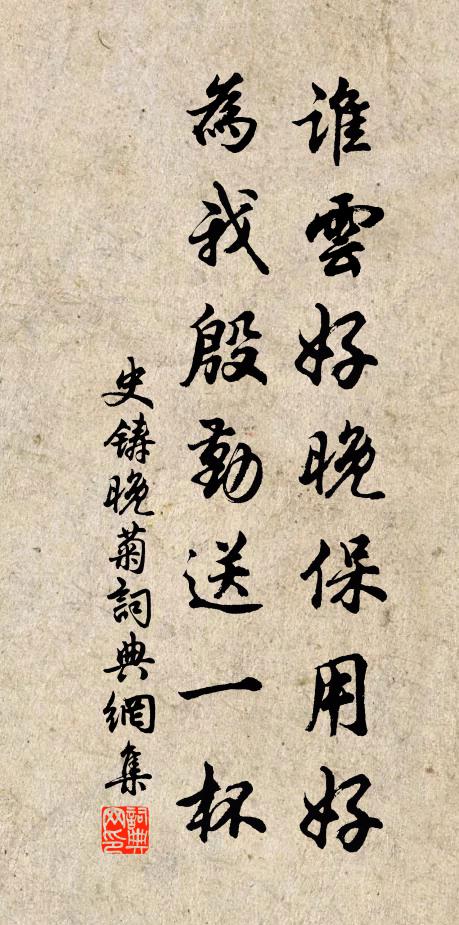 誰雲好晚保用好
為我殷勤送一杯
史鑄晚菊詞典網集
詞典
網印